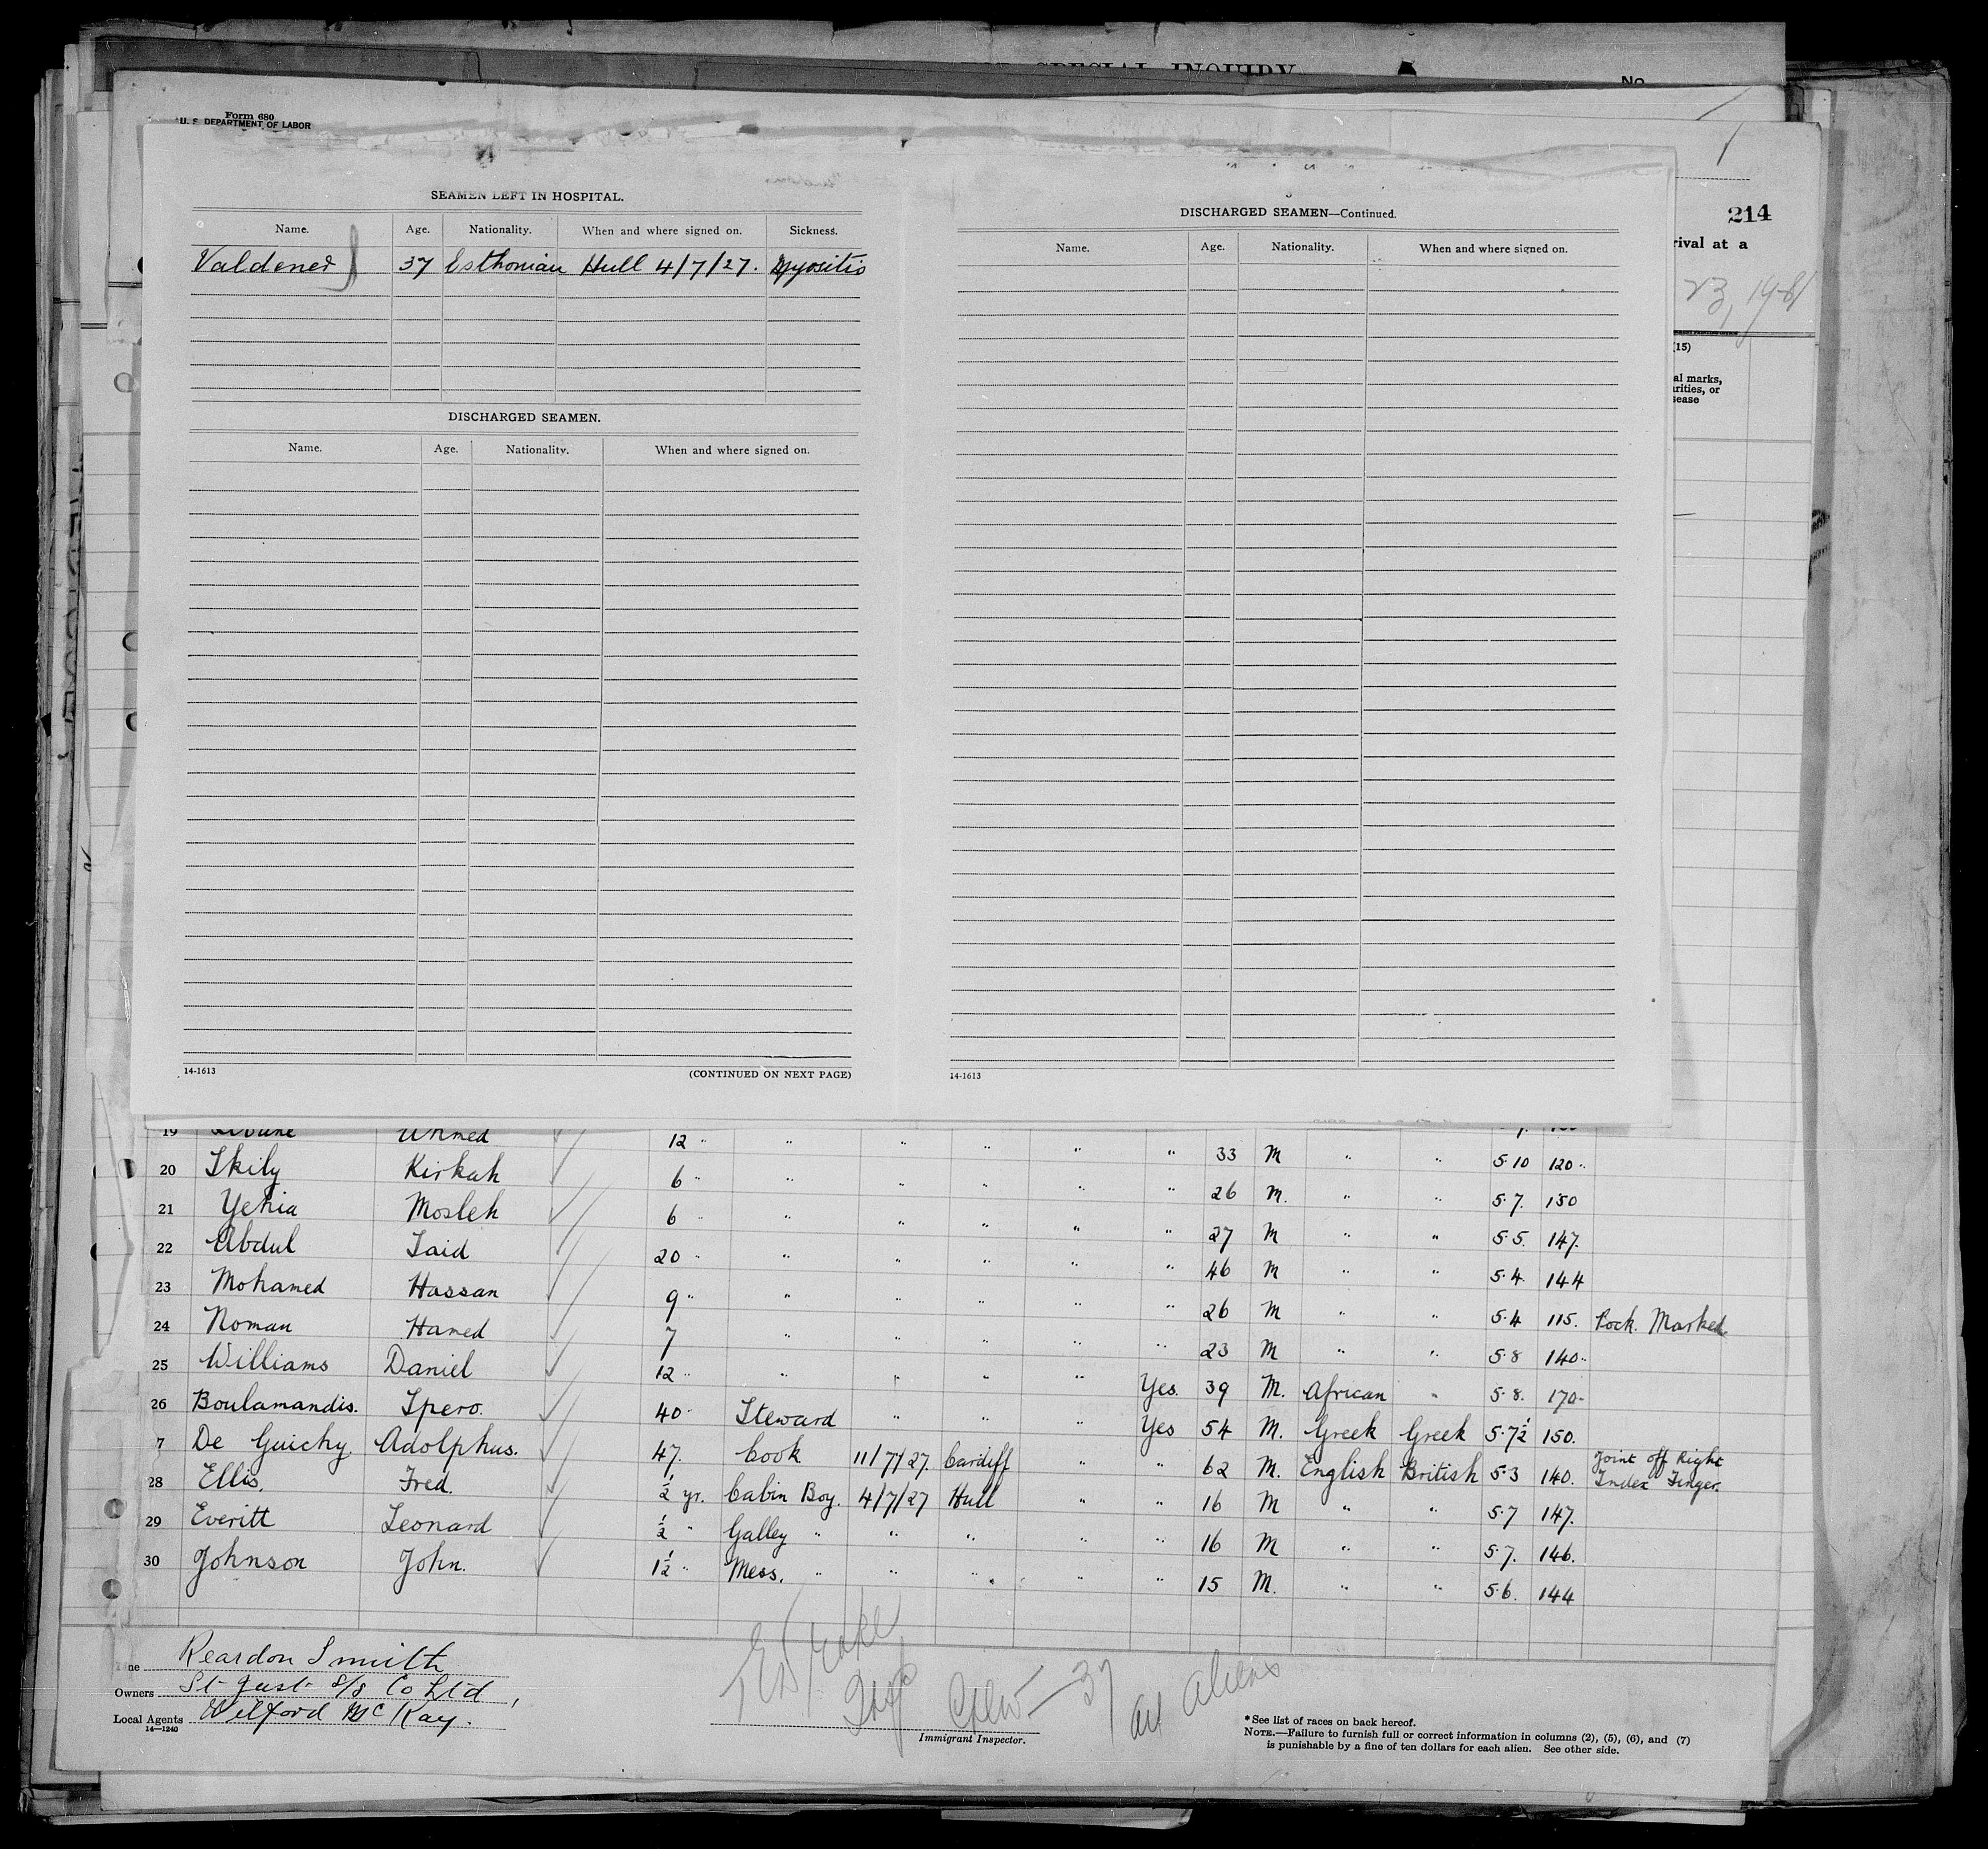 SPECIAL INQUIRY
No.
Form 680
U. S. DEPARTMENT OF LABOR
214
rival at a
(15)
al marks,
rities, or
sease
SEAMEN LEFT IN HOSPITAL.
Name. Age. Nationality. When and where signed on. Sickness.
Valdened 37 Esthonian Hull 4/7/27. Myositis
DISCHARGED SEAMEN.
Name. Age. Nationality. When and where signed on.
14-1613 (CONTINUED ON NEXT PAGE)
DISCHARGED SEAMEN—Continued.
Name. Age. Nationality. When and where signed on.
14-1613
19 Ahmed 12 " " " " " " 33 M " "
20 Skily Kirkah 6 " " " " " " 26 M. " " 5·10 120 "
21 Yehia Mosleh 6 " " " " " " 27 M " " 5·7. 150
22 Abdul Said 20 " " " " " " 46 M " " 5·5. 147.
23 Mohamed Hassan 9 " " " " " " 26 M " " 5·4. 144
24 Noman Hamed 7 " " " " " 23 M " " 5·4 115. Pock. Marked.
25 Williams Daniel 12 " " " " " Yes. 39 M. African " 5·8 140 "
26 Boulamandis. Spero. 40 " Steward " " " Yes 54 M. Greek Greek 5·8. 170
7 De Guichy. Adolphus. 47. Cook 11/7/27. Cardiff " " 62 M. English British 5·7½ 150.
28 Ellis. Fred. ½ yr. Cabin Boy. 4/7/27 Hull " " 16 M " " 5·3 140. Joint off Right Index Finger.
29 Everitt Leonard ½ " Galley " " " " " 16 M " " 5·7 147.
30 Johnson John. 1½ " Mess. " " " " " 15 M. " " 5·7. 146.
5·6. 144
ne Reardon Smith
Owners St Just S/S Co Ltd,
Local Agents Wilford McKay.
14—1240
Crew — 37
all aliens
Immigrant Inspector.
*See list of races on back hereof.
NOTE.—Failure to furnish full or correct information in columns (2), (5), (6), and (7)
is punishable by a fine of ten dollars for each alien. See other side.